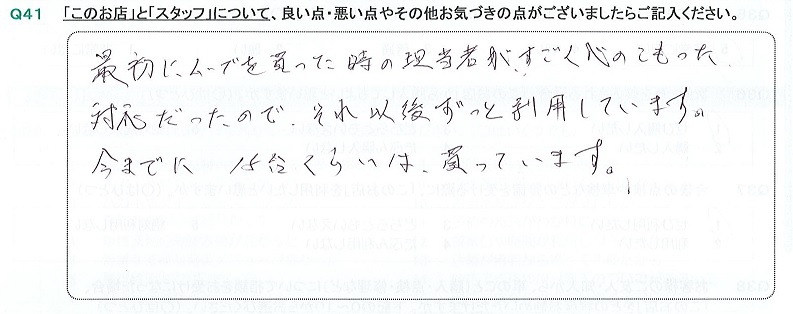 Q41 「このお店」と「スタッフ」について、良い点・悪い点やその他お気づきの点がございましたらご記入ください。
最初にムーブを買った時の担当者が、すごく心のこもった
対応だったので、それ以後ずっと利用しています。
今までに 15台くらいは、買っています。